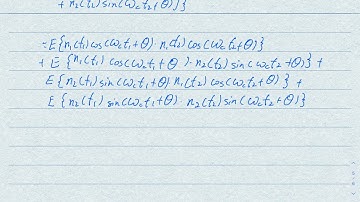 + n₂(t₂) sin(ω_c t₂ + θ)]}
= E{n₁(t₁) cos(ω_c t₁ + θ) · n₁(t₂) cos(ω_c t₂ + θ)}
+ E {n₁(t₁) cos(ω_c t₁ + θ) · n₂(t₂) sin(ω_c t₂ + θ)} +
E{n₂(t₁) sin(ω_c t₁ + θ) n₁(t₂) cos(ω_c t₂ + θ)} +
E {n₂(t₁) sin(ω_c t₁ + θ) · n₂(t₂) sin(ω_c t₂ + θ)}